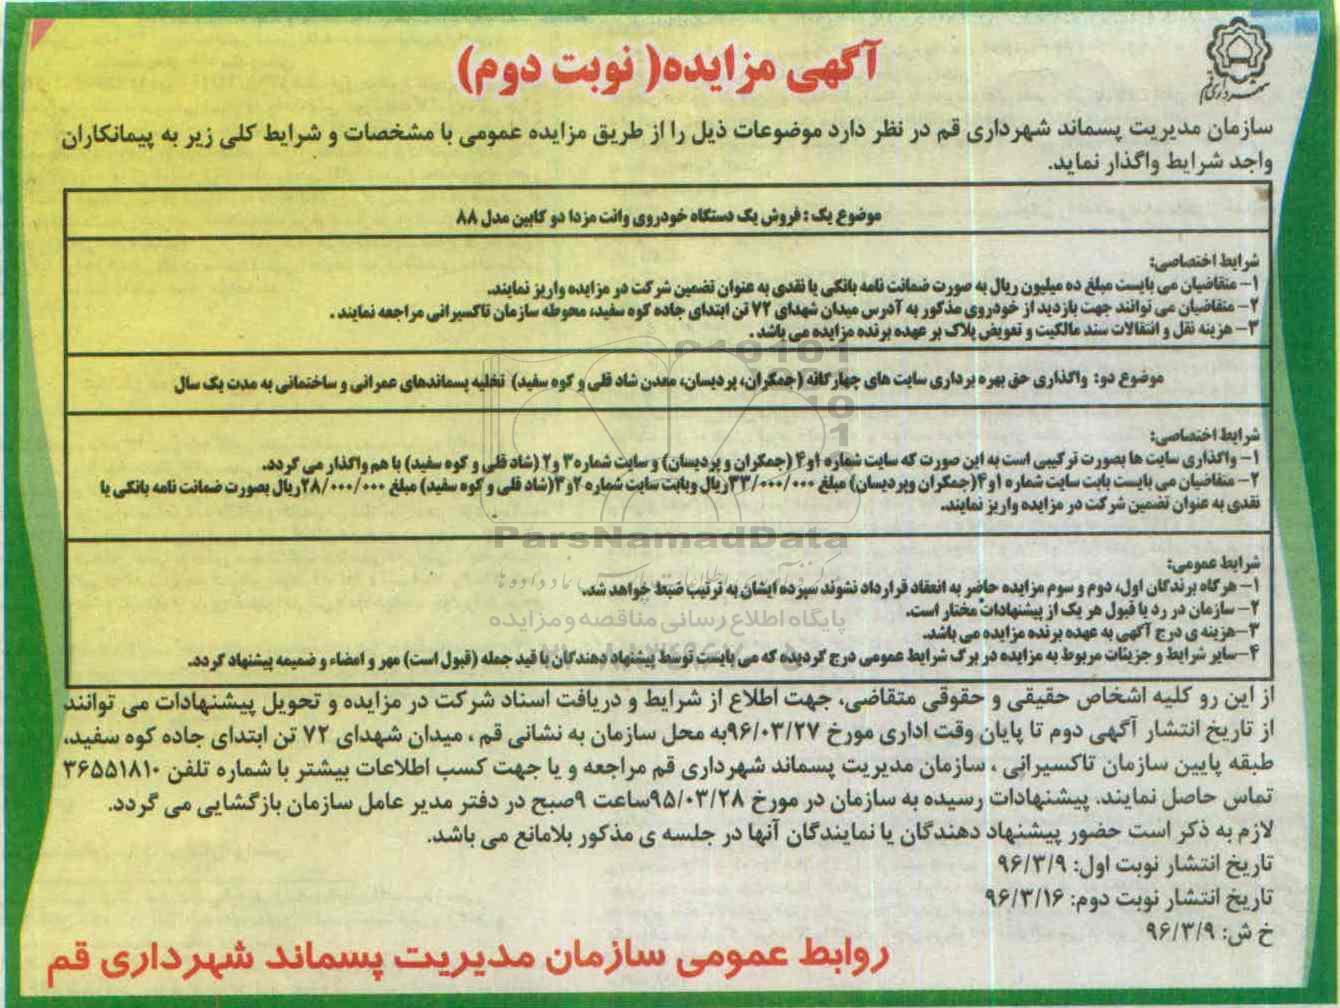 شهرداری قم
آگهی مزایده( نوبت دوم)
سازمان مدیریت پسماند شهرداری قم در نظر دارد موضوعات ذیل را از طریق مزایده عمومی با مشخصات و شرایط کلی زیر به پیمانکاران
واجد شرایط واگذار نماید.
موضوع یک : فروش یک دستگاه خودروی وانت مزدا دو کابین مدل ۸۸
شرایط اختصاصی:
۱- متقاضیان می بایست مبلغ ده میلیون ریال به صورت ضمانت نامه بانکی یا نقدی به عنوان تضمین شرکت در مزایده واریز نمایند.
۲- متقاضیان می توانند جهت بازدید از خودروی مذکور به آدرس میدان شهدای ۷۲ تن ابتدای جاده کوه سفید، محوطه سازمان تاکسیرانی مراجعه نمایند .
۳- هزینه نقل و انتقالات سند مالکیت و تعویض پلاک بر عهده برنده مزایده می باشد .
موضوع دو: واگذاری حق بهره برداری سایت های چهارگانه (جمکران، پردیسان، معدن شاد قلی و کوه سفید) تخلیه پسماندهای عمرانی و ساختمانی به مدت یک سال
شرایط اختصاصی:
۱- واگذاری سایت ها بصورت ترکیبی است به این صورت که سایت شماره ۱و۴ (جمکران و پردیسان) و سایت شماره ۳ و۲ (شاد قلی و کوه سفید) با هم واگذار می گردد.
۲- متقاضیان می بایست بابت سایت شماره ۱و۴(جمکران وپردیسان) مبلغ ۳۳/۰۰۰/۰۰۰ریال وبابت سایت شماره ۲و۳(شاد قلی و کوه سفید) مبلغ ۲۸/۰۰۰/۰۰۰ریال بصورت ضمانت نامه بانکی یا
نقدی به عنوان تضمین شرکت در مزایده واریز نمایند.
ParsNamadData
شرایط عمومی:
۱- هرگاه برندگان اول، دوم و سوم مزایده حاضر به انعقاد قرارداد نشوند سپرده ایشان به ترتیب ضبط خواهد شد.
۲- سازمان در رد یا قبول هر یک از پیشنهادات مختار است.
پایگاه اطلاع رسانی مناقصه و مزایده
۳-هزینه ی درج آگهی به عهده برنده مزایده می باشد.
۴-سایر شرایط و جزئیات مربوط به مزایده در برگ شرایط عمومی درج گردیده که می بایست توسط پیشنهاد دهندگان با قید جمله (قبول است) مهر و امضاء و ضمیمه پیشنهاد گردد.
از این رو کلیه اشخاص حقیقی و حقوقی متقاضی، جهت اطلاع از شرایط و دریافت اسناد شرکت در مزایده و تحویل پیشنهادات می توانند
از تاریخ انتشار آگهی دوم تا پایان وقت اداری مورخ ۹۶/۰۳/۲۷به محل سازمان به نشانی قم ، میدان شهدای ۷۲ تن ابتدای جاده کوه سفید،
طبقه پایین سازمان تاکسیرانی ، سازمان مدیریت پسماند شهرداری قم مراجعه و یا جهت کسب اطلاعات بیشتر با شماره تلفن ۳۶۵۵۱۸۱۰
تماس حاصل نمایند. پیشنهادات رسیده به سازمان در مورخ ۹۵/۰۳/۲۸ساعت ۹صبح در دفتر مدیر عامل سازمان بازگشایی می گردد.
لازم به ذکر است حضور پیشنهاد دهندگان یا نمایندگان آنها در جلسه ی مذکور بلامانع می باشد.
تاریخ انتشار نوبت اول: ۹۶/۳/۹
تاریخ انتشار نوبت دوم: ۹۶/۳/۱۶
خ ش: ۹۶/۳/۹
روابط عمومی سازمان مدیریت پسماند شهرداری قم